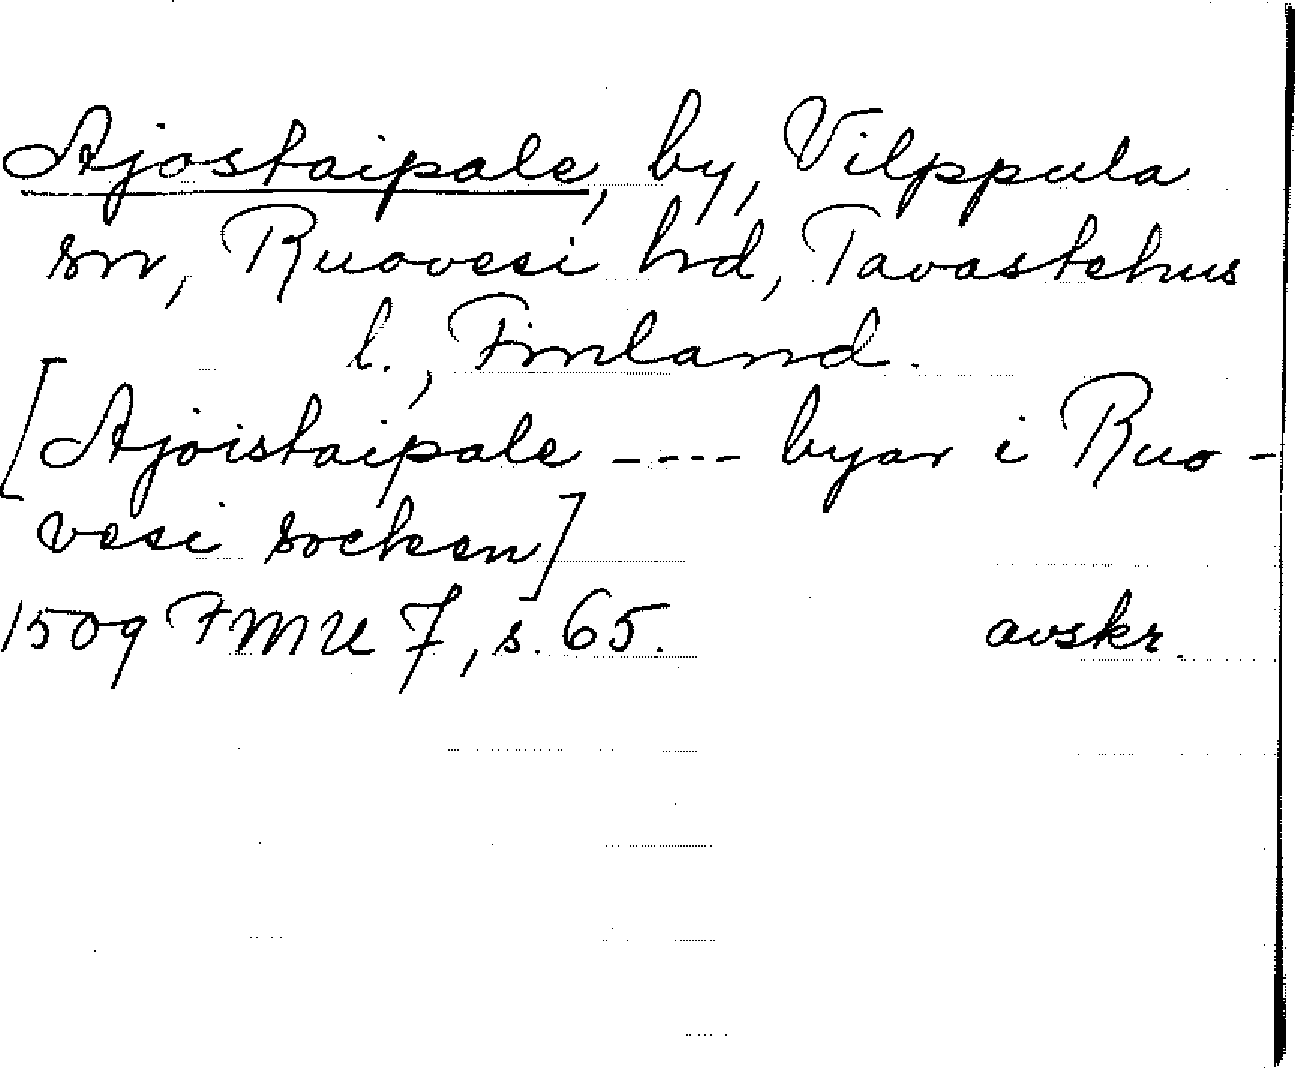 Ajostaipale, by, Vilppula
sn, Ruovesi hd, Tavastehus
l., Finland.
[Ajoistaipale ---- byar i Ruo-
vesi socken]
1509 FMU 7, s. 65. avskr.